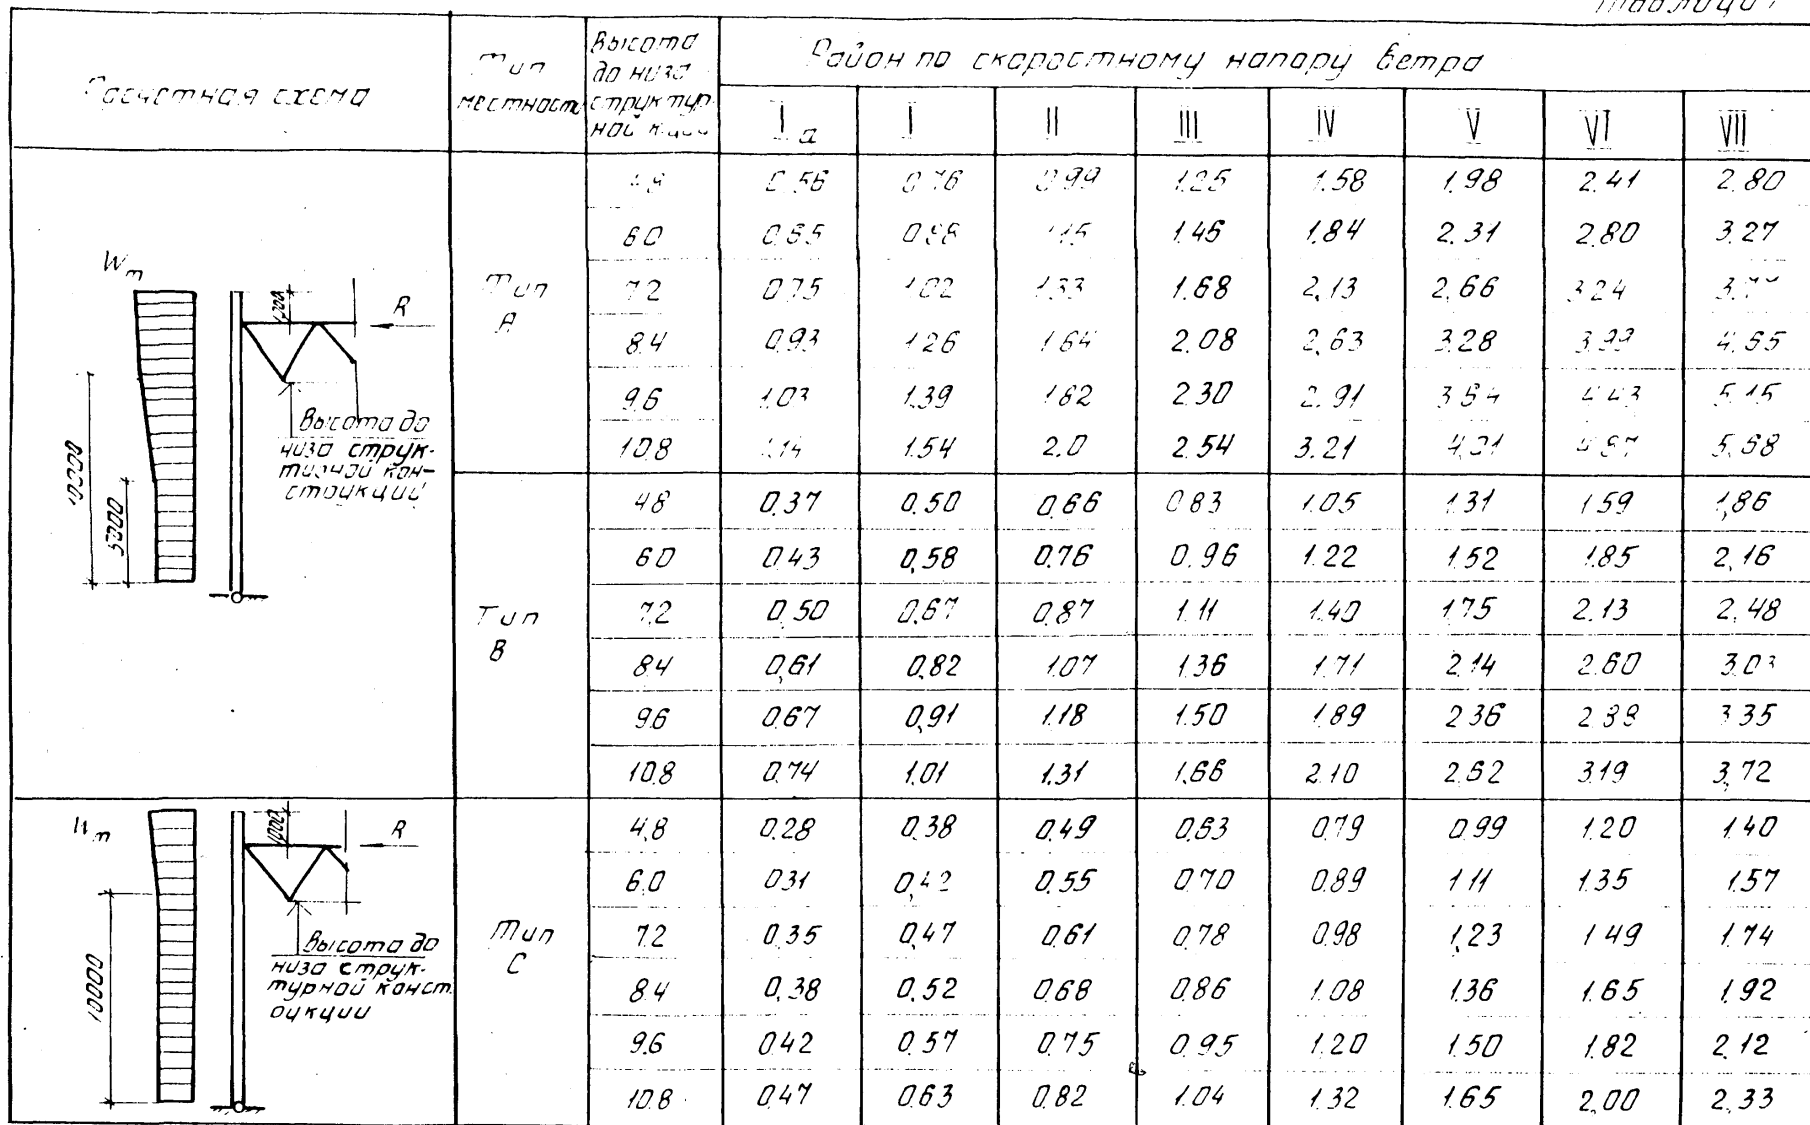 Таблица 1
Расчетная схема
Тип
местност
Высота
до низа
структур
ной к-ции
Район по скоростному напору ветра
Iа I II III IV V VI VII
Wm
1200
R
Высота до
низа струк-
турной кон-
струкции
10000
5000
Тип
А
4.8 0.56 0.76 0.99 1.25 1.58 1.98 2.41 2.80
6.0 0.65 1.46 1.84 2.31 2.80 3.27
7.2 0.75 1.02 1.33 1.68 2,13 2,66 3.24
8.4 0.93 1.26 1.64 2.08 2,63 3.28 3.99 4.55
9.6 1.03 1.39 1.82 2.30 2.91 3.64 4.43 5.15
10.8 1.14 1.54 2.0 2.54 3.21 4,01 5.68
Тип
В
4.8 0,37 0,50 0,66 0.83 1.05 1.31 1.59 1,86
6.0 0.43 0,58 0.76 0.96 1.22 1.52 1.85 2,16
7.2 0,50 0,67 0,87 1.11 1.40 1.75 2.13 2,48
8.4 0,61 0,82 1.07 1.36 1.71 2.14 2.60 3.03
9.6 0.67 0,91 1.18 1.50 1.89 2.36 2.88 3.35
10.8 0.74 1.01 1.31 1.66 2.10 2.62 3.19 3,72
Wm
1200
R
Высота до
низа струк-
турной конст
рукции
10000
Тип
С
4,8 0,28 0,38 0,49 0,63 0.79 0.99 1.20 1.40
6.0 0.31 0,42 0.55 0.70 0.89 1.11 1.35 1.57
7.2 0.35 0,47 0,61 0,78 0.98 1,23 1.49 1.74
8.4 0,38 0,52 0,68 0,86 1.08 1.36 1.65 1,92
9.6 0.42 0.57 0.75 0.95 1.20 1.50 1.82 2.12
10.8 0,47 0.63 0.82 1.04 1.32 1.65 2,00 2,33